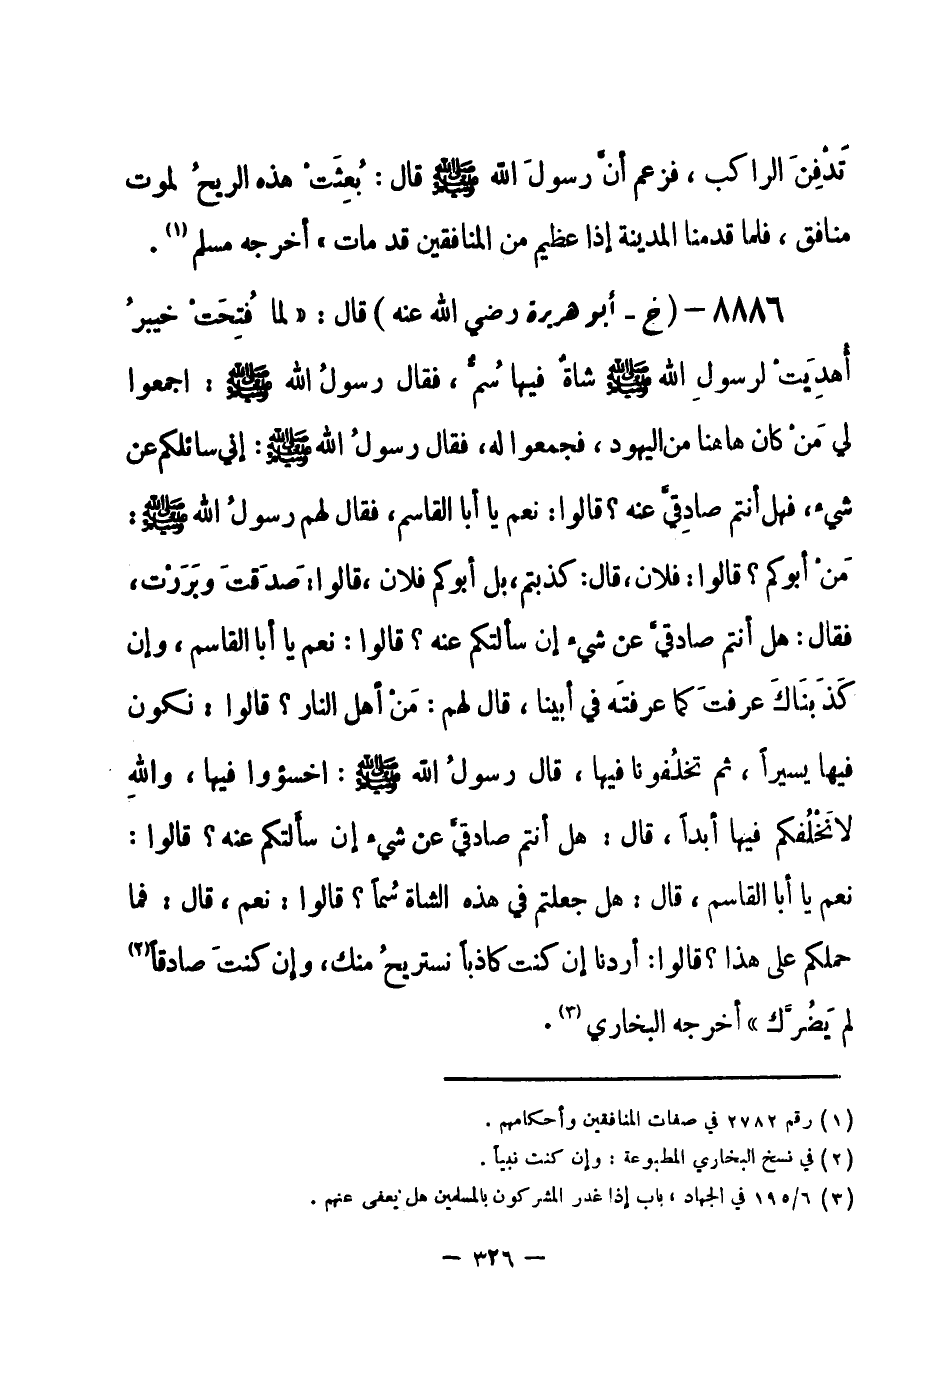 تَدْفِنَ الراكب ، فزعم أنَّ رسولَ الله ﷺ قال : بُعِثَتْ هذه الريحُ لموت
منافق ، فلما قدمنا المدينة إذا عظيم من المنافقين قد مات » أخرجه مسلم (١) .
٨٨٨٦ - ( خ - أبو هريرة رضي الله عنه ) قال : « لما فُتِحَتْ خيبرُ
أُهدِيَتْ لرسولِ الله ﷺ شاةٌ فيها سُمٌّ ، فقال رسولُ الله ﷺ : اجمعوا
لي مَنْ كان هاهنا من اليهود ، فجمعوا له، فقال رسولُ الله ﷺ : إني سائلكم عن
شيء، فهل أنتم صادِقيَّ عنه ؟ قالوا: نعم يا أبا القاسم، فقال لهم رسولُ الله ﷺ :
مَنْ أبوكم ؟ قالوا: فلان ، قال: كذبتم، بل أبوكم فلان ، قالوا: صَدَقتَ وبَرَرْت،
فقال : هل أنتم صادقيَّ عن شيء إن سألتكم عنه ؟ قالوا : نعم يا أبا القاسم ، وإن
كَذَبنَاكَ عرفتَ كما عرفتَه في أبينا ، قال لهم : مَنْ أهل النار ؟ قالوا : نكون
فيها يسيراً ، ثم تخلُفونا فيها ، قال رسولُ الله ﷺ : اخسؤوا فيها ، واللهِ
لا نَخْلُفكم فيها أبداً ، قال : هل أنتم صادقيَّ عن شيء إن سألتكم عنه ؟ قالوا :
نعم يا أبا القاسم ، قال : هل جعلتم في هذه الشاة سُماً ؟ قالوا : نعم ، قال : فما
حملكم على هذا ؟ قالوا: أردنا إن كنت كاذباً نستريحُ منك، وإن كنتَ صادقاً(٢)
لم يَضُرَّك » أخرجه البخاري (٣) .
(١) رقم ٢٧٨٢ في صفات المنافقين وأحكامهم .
(٢) في نسخ البخاري المطبوعة : وإن كنت نبياً .
(٣) ١٩٥/٦ في الجهاد ، باب إذا غدر المشركون بالمسلمين هل يعفى عنهم .
- ٣٢٦ -